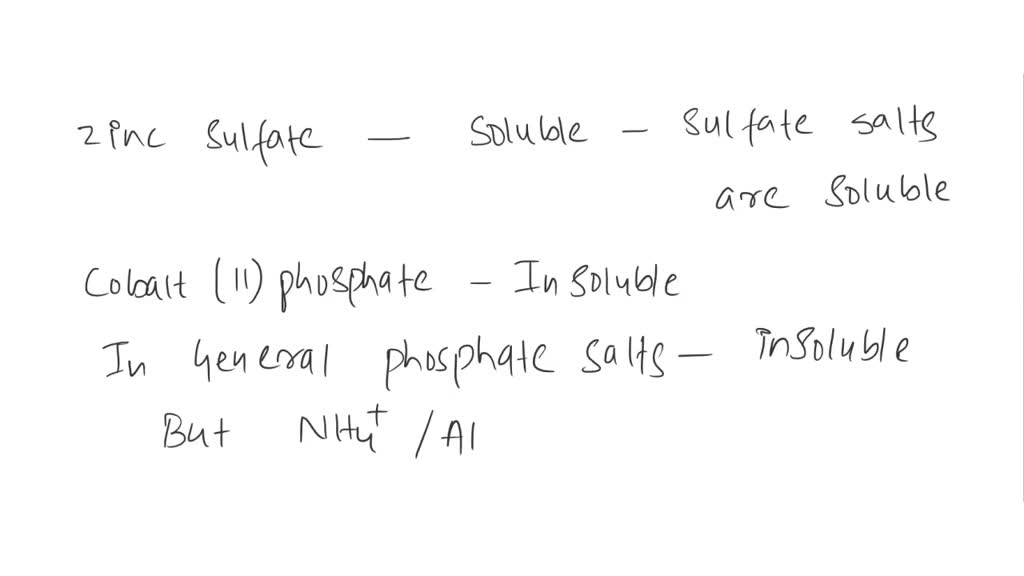 Zinc Sulfate — Soluble — Sulfate salts
are soluble
Cobalt (II) phosphate — Insoluble
In General phosphate salts — insoluble
But NH4+ / Al